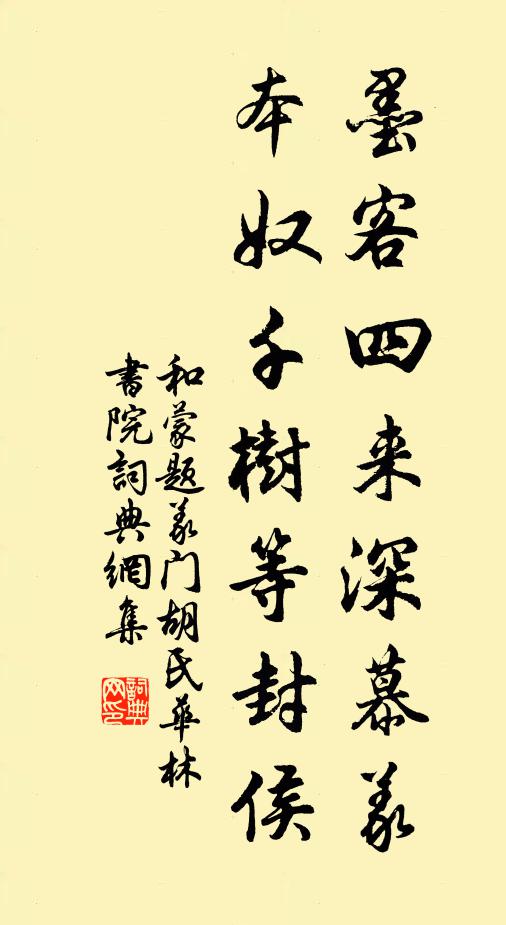 墨客四来深慕义
本奴千樹等封侯
和蒙题义门胡氏華林
書院詞典網集
詞典网印